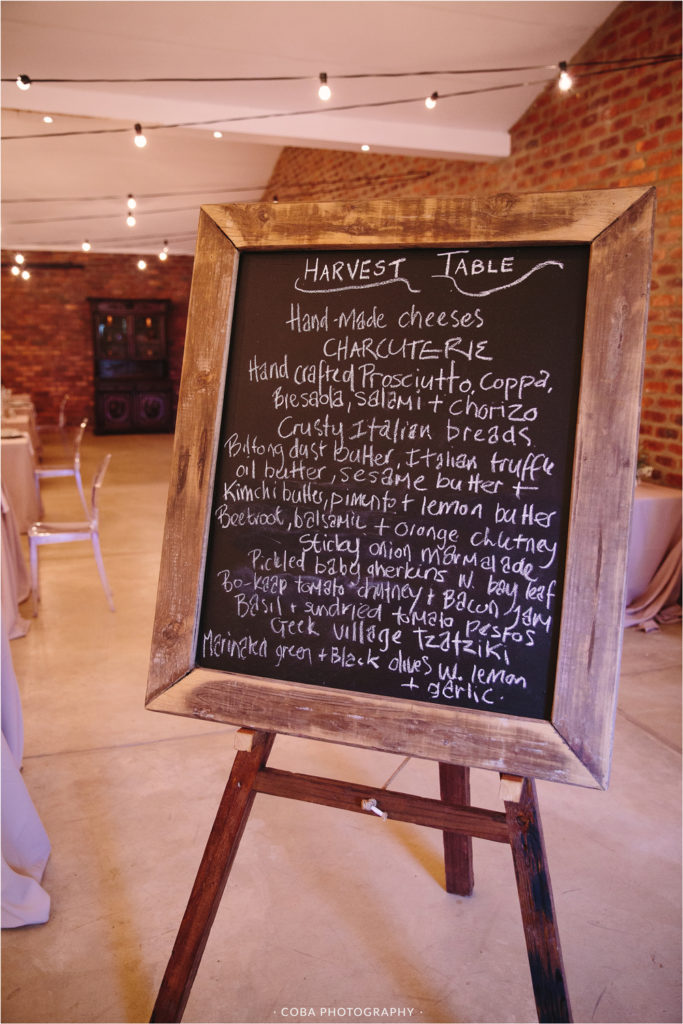 HARVEST TABLE
Hand-Made cheeses
CHARCUTERIE
Hand crafted Prosciutto, Coppa,
Biesaola, salami + chorizo
Crusty Italian breads
Biltong dust butter, Italian truffle
oil butter, sesame butter +
Kimchi butter, pimento + lemon butter
Beetroot, balsamic + orange chutney
Sticky onion marmalade
Pickled baby gherkins w. bay leaf
Bo-kaap tomato chutney + Bacon jam
Basil + sundried tomato Pestos
Geek village Tzatziki
green + Black olives w. lemon
+ garlic.
· COBA PHOTOGRAPHY ·